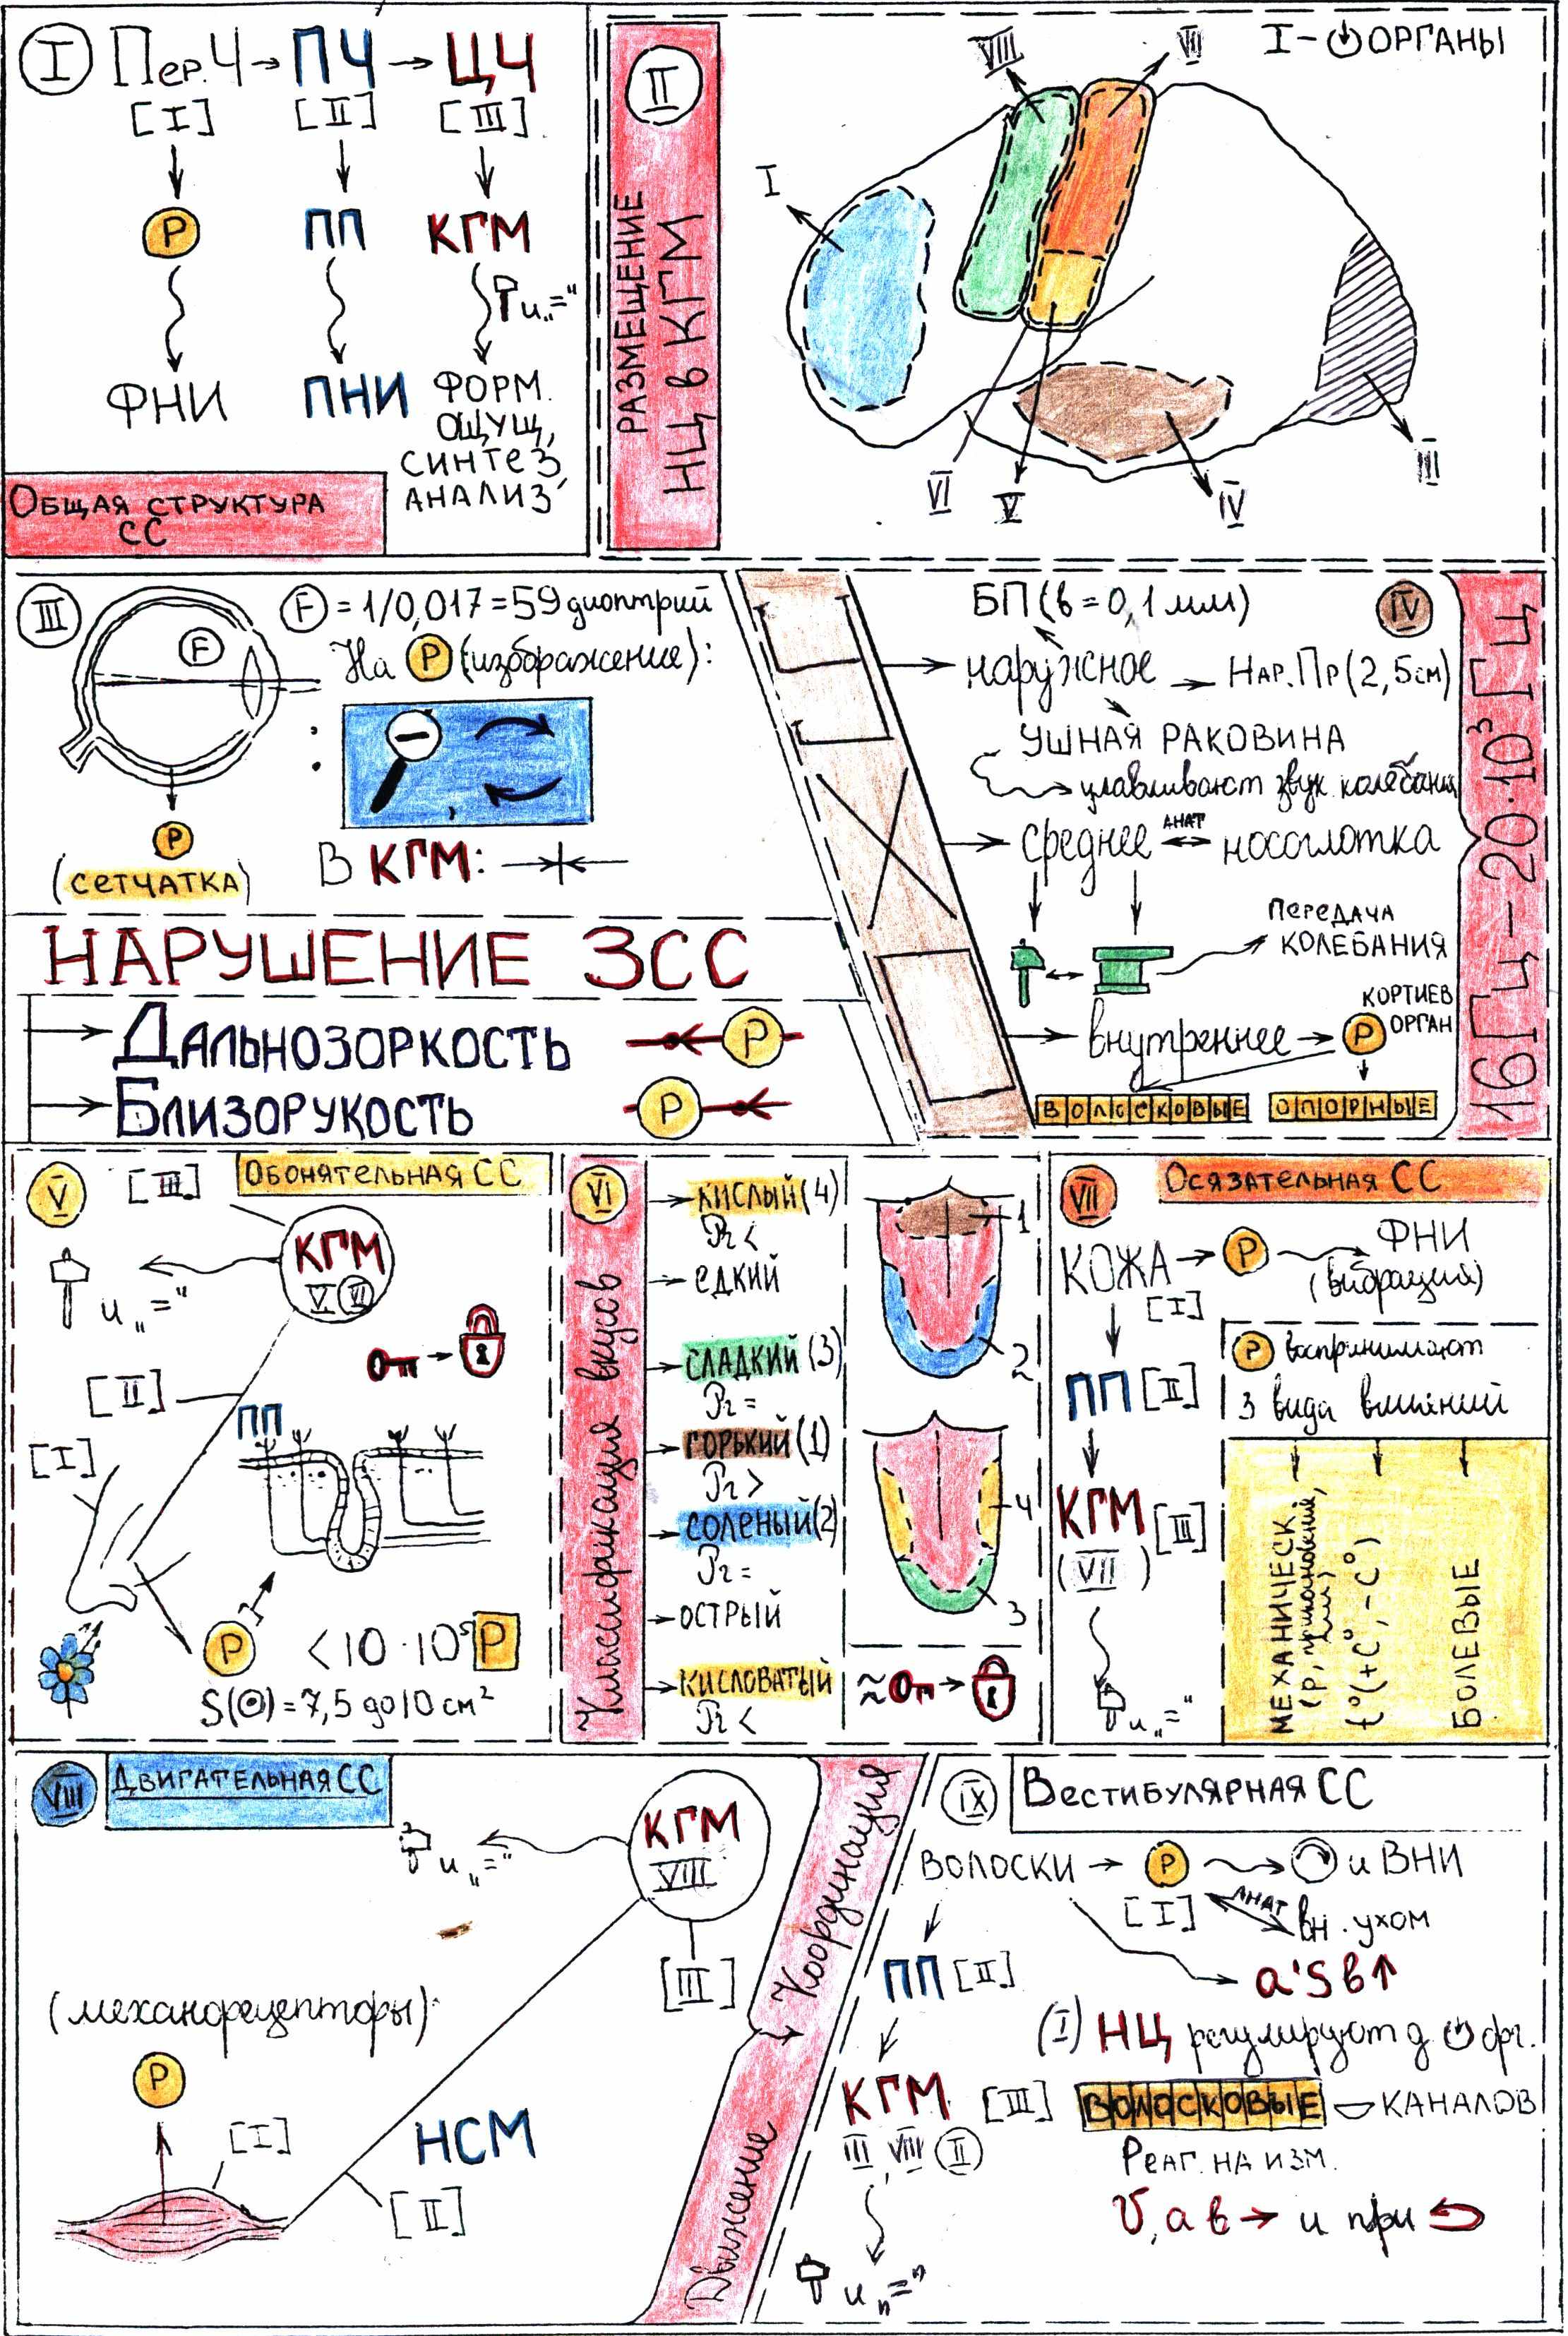 I Пер.Ч → ПЧ → ЦЧ
[I] [II] [III]
Р ПП КГМ
и „="
ФНИ ПНИ ФОРМ.
ОЩУЩ,
СИНТЕЗ,
АНАЛИЗ
ОБЩАЯ СТРУКТУРА
СС
II
РАЗМЕЩЕНИЕ
НЦ в КГМ
I - ОРГАНЫ
VIII VII
I
VI V IV III
III
F = 1/0,017 = 59 диоптрий
На Р (изображение):
F
Р
(СЕТЧАТКА)
В КГМ:
НАРУШЕНИЕ ЗСС
ДАЛЬНОЗОРКОСТЬ Р
БЛИЗОРУКОСТЬ Р
IV
БП (в = 0,1 мм)
наружное → НАР.ПР (2,5см)
УШНАЯ РАКОВИНА
улавливают звук. колебания
среднее АНАТ носоглотка
ПЕРЕДАЧА
КОЛЕБАНИЯ
внутреннее → Р КОРТИЕВ
ОРГАН
ВОЛОСКОВЫЕ ОПОРНЫЕ
16 Гц – 20·10³ Гц
V ОБОНЯТЕЛЬНАЯ СС
[III]
КГМ
V VI
и „="
[II]
ПП
[I]
Р < 10·10⁵ Р
S(⊙) = 7,5 до 10 см²
VI
Классификация вкусов
КИСЛЫЙ (4)
Pr <
ЕДКИЙ
СЛАДКИЙ (3)
Pr =
ГОРЬКИЙ (1)
Pr >
СОЛЕНЫЙ (2)
Pr =
ОСТРЫЙ
КИСЛОВАТЫЙ
Pr <
1
2
4
3
VII ОСЯЗАТЕЛЬНАЯ СС
КОЖА → Р ФНИ
[I] (вибрация)
ПП [II]
КГМ [III]
(VII)
и „="
Р воспринимают
3 вида влияний
МЕХАНИЧЕСК.
t°(+C°, -C°)
БОЛЕВЫЕ
VIII ДВИГАТЕЛЬНАЯ СС
КГМ
VIII
и „="
[III]
(механорецепторы)
Р
[I]
НСМ
[II]
Координация
Движение
IX ВЕСТИБУЛЯРНАЯ СС
ВОЛОСКИ → Р и ВНИ
[I] АНАТ вн. ухом
ПП [II]
a'S в↑
(I) НЦ регулируют д. орг.
КГМ [III] ВОЛОСКОВЫЕ КАНАЛОВ
III VIII II
РЕАГ. НА ИЗМ.
V, а в → и при
и „="